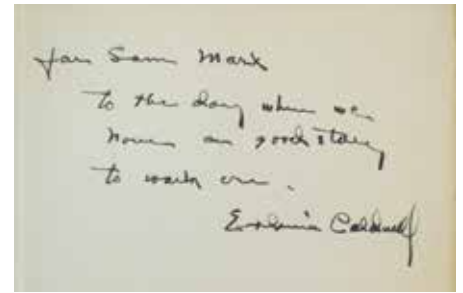 for Sam Marx
to the day when we
have a good story
to work on.
Erskine Caldwell